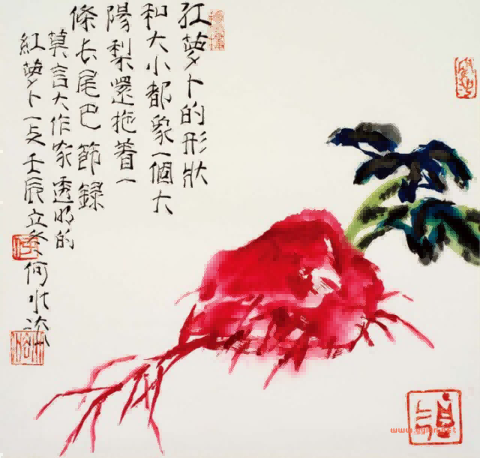 红萝卜的形狀
和大小都象一個大
陽梨還拖着一
條长尾巴 節録
莫言大作家透明的
紅萝卜一文 壬辰立冬 何水法